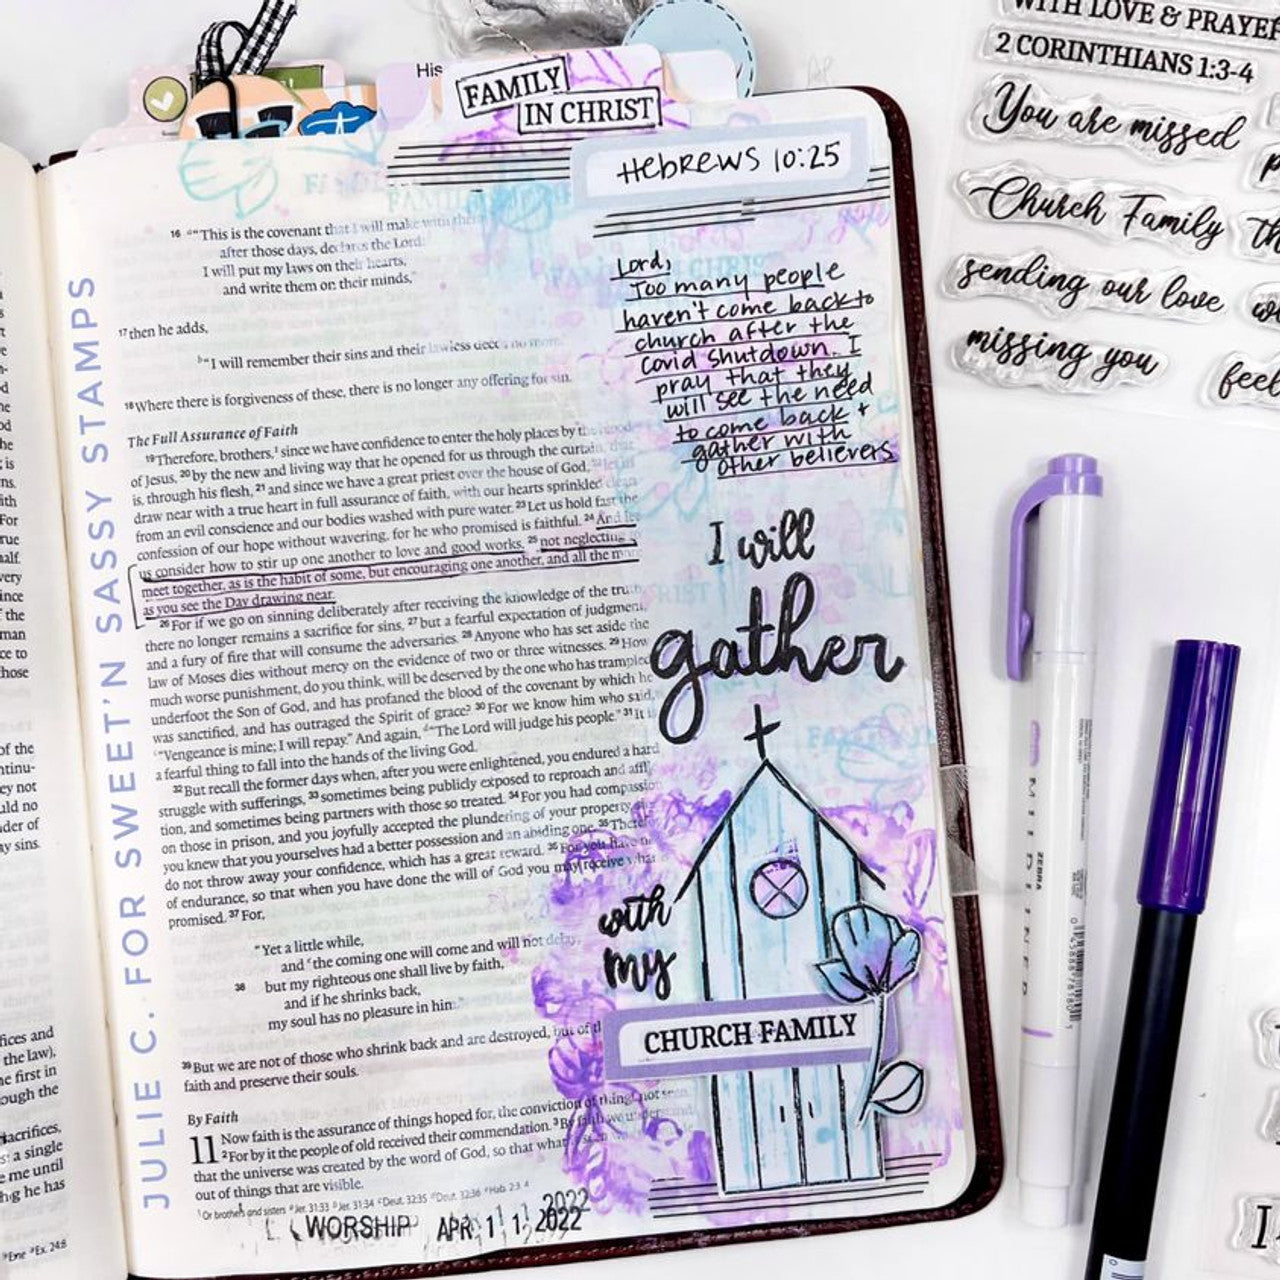 His
FAMILY
IN CHRIST
Hebrews 10:25
16 "“This is the covenant that I will make with them
after those days, declares the Lord:
I will put my laws on their hearts,
and write them on their minds,”
17 then he adds,
“I will remember their sins and their lawless deeds no more.”
18 Where there is forgiveness of these, there is no longer any offering for sin.
The Full Assurance of Faith
19 Therefore, brothers, since we have confidence to enter the holy places by the blood
of Jesus, 20 by the new and living way that he opened for us through the curtain, that
is, through his flesh, 21 and since we have a great priest over the house of God, 22 let us
draw near with a true heart in full assurance of faith, with our hearts sprinkled clean
from an evil conscience and our bodies washed with pure water. 23 Let us hold fast the
confession of our hope without wavering, for he who promised is faithful. 24 And let
us consider how to stir up one another to love and good works, 25 not neglecting
meet together, as is the habit of some, but encouraging one another, and all the more
as you see the Day drawing near.
26 For if we go on sinning deliberately after receiving the knowledge of the truth,
there no longer remains a sacrifice for sins, 27 but a fearful expectation of judgment,
and a fury of fire that will consume the adversaries. 28 Anyone who has set aside the
law of Moses dies without mercy on the evidence of two or three witnesses. 29 How
much worse punishment, do you think, will be deserved by the one who has trampled
underfoot the Son of God, and has profaned the blood of the covenant by which he
was sanctified, and has outraged the Spirit of grace? 30 For we know him who said,
“Vengeance is mine; I will repay.” And again, “The Lord will judge his people.” 31 It is
a fearful thing to fall into the hands of the living God.
32 But recall the former days when, after you were enlightened, you endured a hard
struggle with sufferings, 33 sometimes being publicly exposed to reproach and affl
tion, and sometimes being partners with those so treated. 34 For you had compassion
on those in prison, and you joyfully accepted the plundering of your property,
you knew that you yourselves had a better possession and an abiding one. 35 Therefore
do not throw away your confidence, which has a great reward. 36 For you have need
of endurance, so that when you have done the will of God you may receive what
promised. 37 For,
“Yet a little while,
and the coming one will come and will not delay;
38 but my righteous one shall live by faith,
and if he shrinks back,
my soul has no pleasure in him.”
39 But we are not of those who shrink back and are destroyed, but of th
faith and preserve their souls.
By Faith
11 Now faith is the assurance of things hoped for, the conviction of things not seen.
2 For by it the people of old received their commendation. 3 By faith we understand
that the universe was created by the word of God, so that what
out of things that are visible.
Or brothers and sisters
WORSHIP APR 11 2022
2022
Lord,
Too many people
haven't come back to
church after the
Covid shutdown. I
pray that they
will see the need
to come back +
gather with
other believers
I will
gather
with
my
CHURCH FAMILY
JULIE C. FOR SWEET'N SASSY STAMPS
WITH LOVE & PRAYER
2 CORINTHIANS 1:3-4
You are missed
Church Family
sending our love
missing you
feel
MILDLINER
ZEBRA